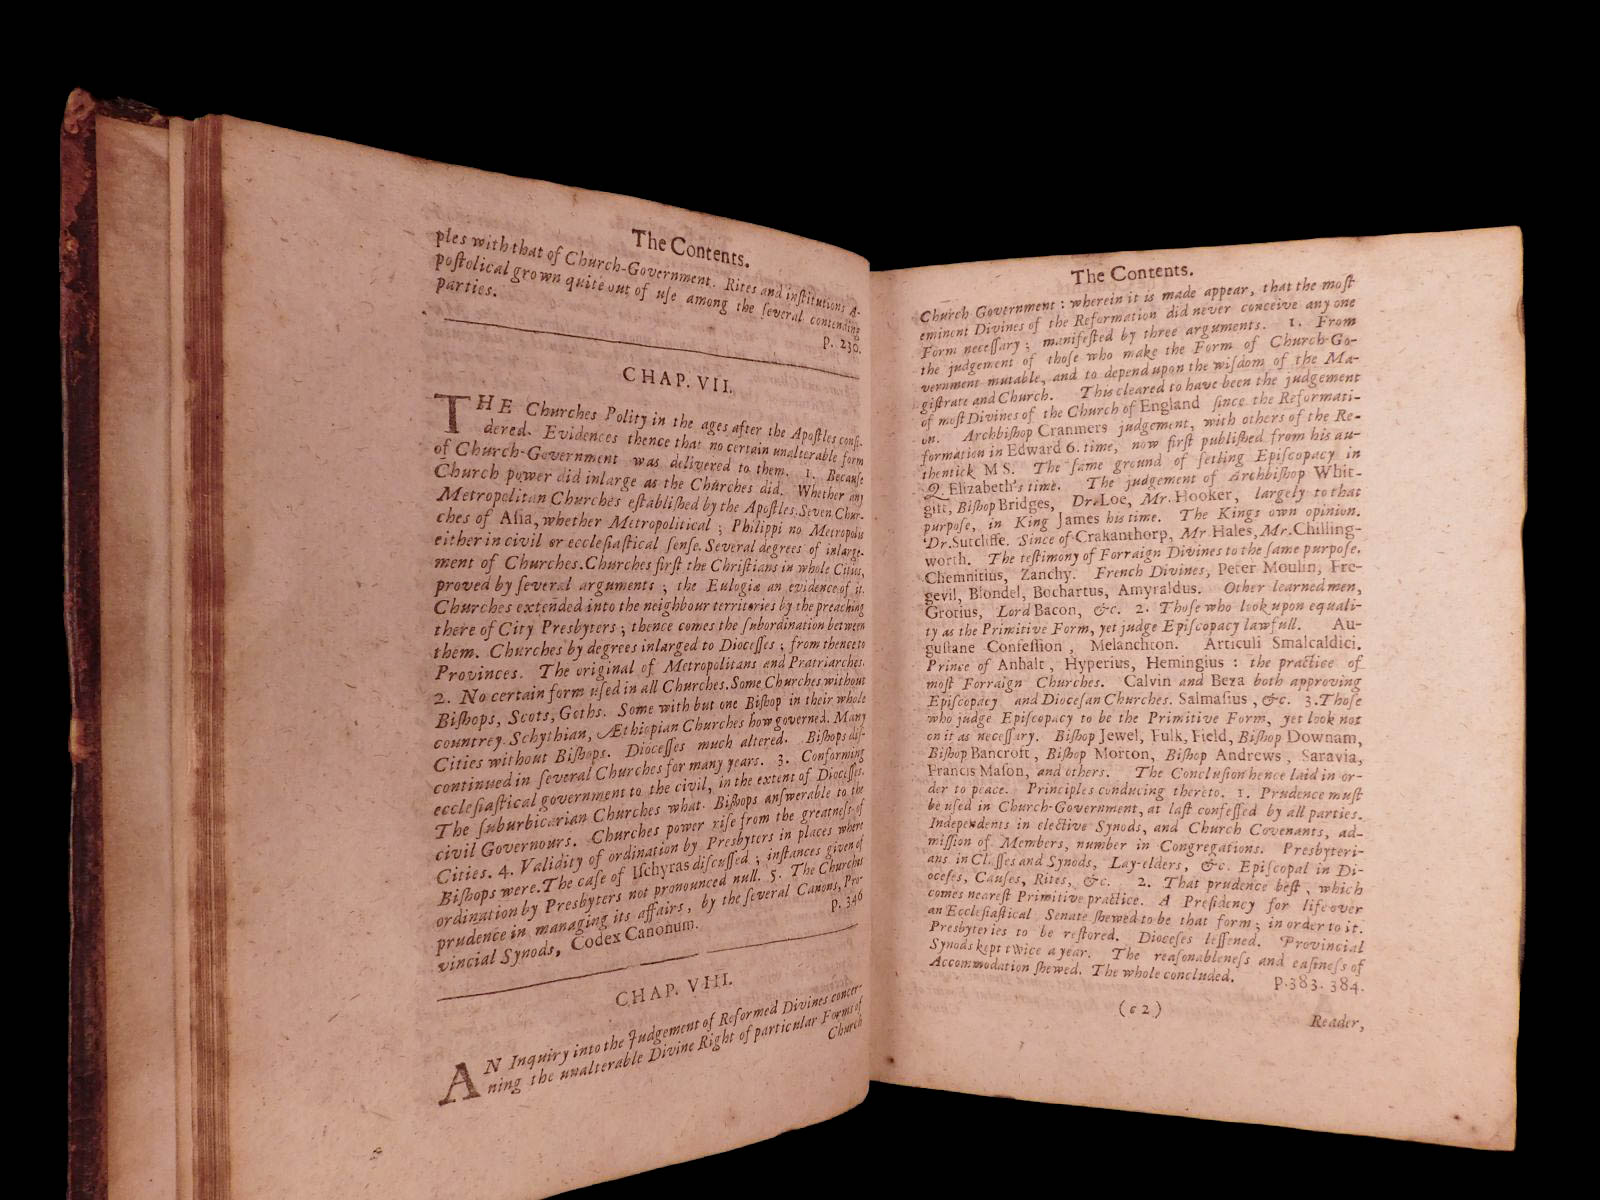 The Contents.
ples with that of Church-Government. Rites and institutions A-
postolical grown quite out of use among the several contending
parties. p. 230.
CHAP. VII.
THE Churches Polity in the ages after the Apostles consi-
dered. Evidences thence that no certain unalterable form
of Church-Government was delivered to them. 1. Because
Church power did inlarge as the Churches did. Whether any
Metropolitan Churches established by the Apostles. Seven Chur-
ches of Asia, whether Metropolitical ; Philippi no Metropolis
either in civil or ecclesiastical sense. Several degrees of inlarge-
ment of Churches. Churches first the Christians in whole Cities,
proved by several arguments ; the Eulogiæ an evidence of it.
Churches extended into the neighbour territories by the preaching
there of City Presbyters ; thence comes the subordination between
them. Churches by degrees inlarged to Diocesses ; from thence to
Provinces. The original of Metropolitans and Pratriarches.
2. No certain form used in all Churches. Some Churches without
Bishops, Scots, Goths. Some with but one Bishop in their whole
countrey. Schythian, Æthiopian Churches how governed. Many
Cities without Bishops. Diocesses much altered. Bishops dis-
continued in several Churches for many years. 3. Conforming
ecclesiastical government to the civil, in the extent of Diocesses.
The suburbicarian Churches what. Bishops answerable to the
civil Governours. Churches power rise from the greatness of
Cities. 4. Validity of ordination by Presbyters in places where
Bishops were. The case of Ischyras discussed ; instances given of
ordination by Presbyters not pronounced null. 5. The Churches
prudence in managing its affairs, by the several Canons, Pro-
vincial Synods, Codex Canonum. p. 346
CHAP. VIII.
AN Inquiry into the Judgement of Reformed Divines concer-
ning the unalterable Divine Right of particular Forms of
Church
The Contents.
Church Government : wherein it is made appear, that the most
eminent Divines of the Reformation did never conceive any one
Form necessary ; manifested by three arguments. 1. From
the judgement of those who make the Form of Church-Go-
vernment mutable, and to depend upon the wisdom of the Ma-
gistrate and Church. This cleared to have been the judgement
of most Divines of the Church of England since the Reformati-
on. Archbishop Cranmers judgement, with others of the Re-
formation in Edward 6. time, now first published from his au-
thentick MS. The same ground of setling Episcopacy in
Q. Elizabeth's time. The judgement of Archbishop Whit-
gift, Bishop Bridges, Dr. Loe, Mr. Hooker, largely to that
purpose, in King James his time. The Kings own opinion.
Dr. Sutcliffe. Since of Crakanthorp, Mr Hales, Mr. Chilling-
worth. The testimony of Forraign Divines to the same purpose.
Chemnitius, Zanchy. French Divines, Peter Moulin, Fre-
gevil, Blondel, Bochartus, Amyraldus. Other learned men,
Grotius, Lord Bacon, &c. 2. Those who look upon equali-
ty as the Primitive Form, yet judge Episcopacy lawfull. Au-
gustane Confession, Melanchton. Articuli Smalcaldici.
Prince of Anhalt, Hyperius, Hemingius : the practice of
most Forraign Churches. Calvin and Beza both approving
Episcopacy and Diocesan Churches. Salmasius, &c. 3. Those
who judge Episcopacy to be the Primitive Form, yet look not
on it as necessary. Bishop Jewel, Fulk, Field, Bishop Downam,
Bishop Bancroft, Bishop Morton, Bishop Andrews, Saravia,
Francis Mason, and others. The Conclusion hence laid in or-
der to peace. Principles conducing thereto. 1. Prudence must
be used in Church-Government, at last confessed by all parties.
Independents in elective Synods, and Church Covenants, ad-
mission of Members, number in Congregations. Presbyteri-
ans in Classes and Synods, Lay-elders, &c. Episcopal in Di-
oceses, Causes, Rites, &c. 2. That prudence best, which
comes nearest Primitive practice. A Presidency for life over
an Ecclesiastical Senate shewed to be that form ; in order to it.
Presbyteries to be restored. Dioceses lessened. Provincial
Synods kept twice a year. The reasonableness and easiness of
Accommodation shewed. The whole concluded. p. 383. 384.
(c 2)
Reader,